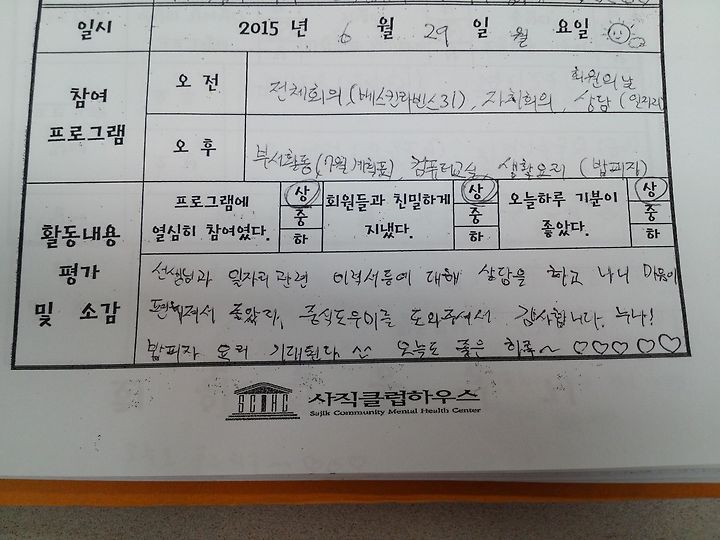 일시 2015 년 6 월 29 일 월 요일
참여 프로그램
오 전
회원의 날
전체회의(베스킨라빈스31), 자치회의, 상담 (일자리)
오 후
부서활동(7월 계획표), 컴퓨터교실, 생활요리 (밥피자)
활동내용 평가 및 소감
프로그램에 열심히 참여였다. 상 중 하
회원들과 친밀하게 지냈다. 상 중 하
오늘하루 기분이 좋았다. 상 중 하
선생님과 일자리 관련 이력서등에 대해 상담을 하고 나니 마음이
편해져서 좋았다, 중식도우미를 도와주셔서 감사합니다. 누나!
밥피자 요리 기대된다 오늘도 좋은 하루~ ♡♡♡♡♡
SCMHC
사직클럽하우스
Sajik Community Mental Health Center